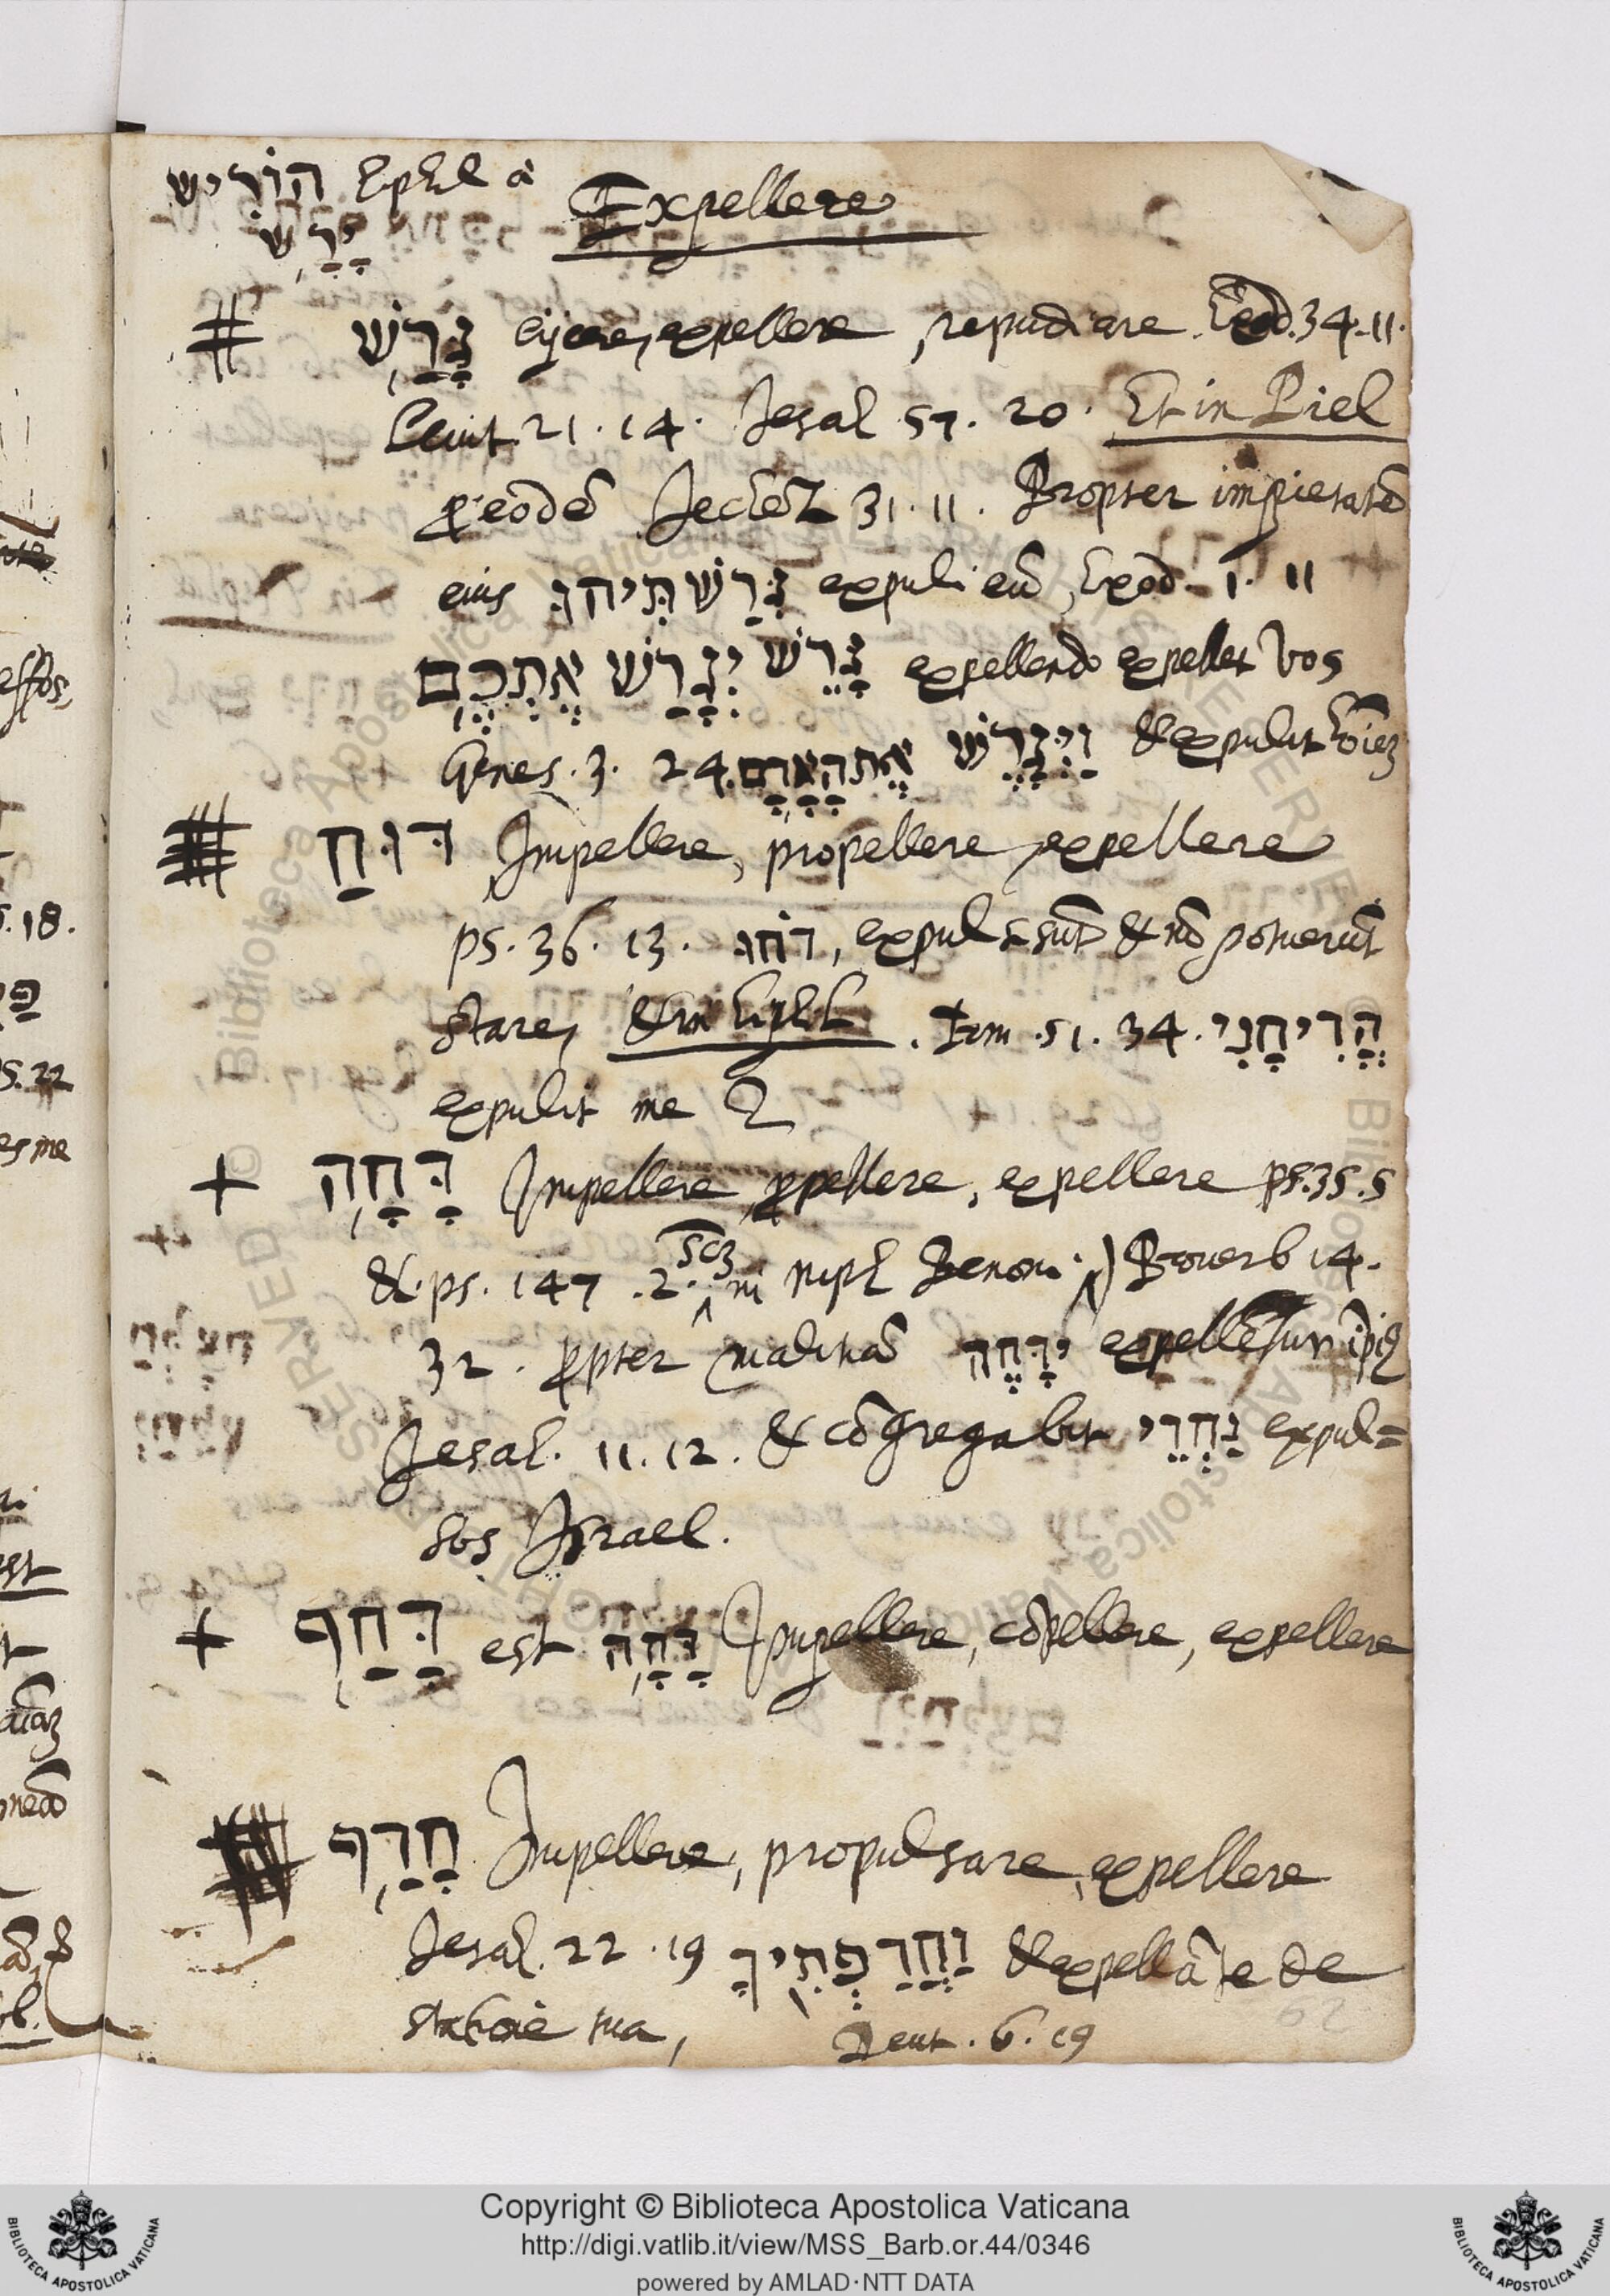 הוֹרִישׁ Ephil à
יָרַשׁ
Expellere
גָּרַשׁ eijcere, expellere, repudiare. Exod. 34. 11.
Leuit. 21. 14. Jesai 57. 20. Et in Piel
ꝓ eodē Jechez 31. 11. Propter impietatē
eius גֵּרַשׁתִּיהוּ expuli eū, Exod. 1. 11
גָּרֵשׁ יְגָרֵשׁ אֶתְכֶם expellendo expellet vos
Genes. 3. 24. וַיְגָרֶשׁ אֶת הָאָדָם & expulit
דּוּחַ Impellere, propellere, expellere
ps. 36. 13. דֹּחוּ, expulsi sūt & nō potuerūt
stare, & in Ephil. 51. 34. הֱדִיחָנִי
expulit me
דָּחָה Impellere, ꝓpellere, expellere ps. 35. 5
& ps. 147. 2. in niph Benoni Prouerb 14.
32. ꝓpter malitiā יִדָּחֶה expelletur
Jesai. 11. 12. & cōgregabit נִדְחֵי expul=
sos Israel.
דָּחַף est דָּחָה Impellere, cōpellere, expellere
הָדַף Impellere, propulsare, expellere
Jesai. 22. 19 וַהֲדַפְתִּיךָ & expellā te de
statione tua, Deut. 6. 19
effos,
18.
S. 22
es me
Copyright © Biblioteca Apostolica Vaticana
http://digi.vatlib.it/view/MSS_Barb.or.44/0346
powered by AMLAD·NTT DATA
BIBLIOTECA APOSTOLICA VATICANA
BIBLIOTECA APOSTOLICA VATICANA